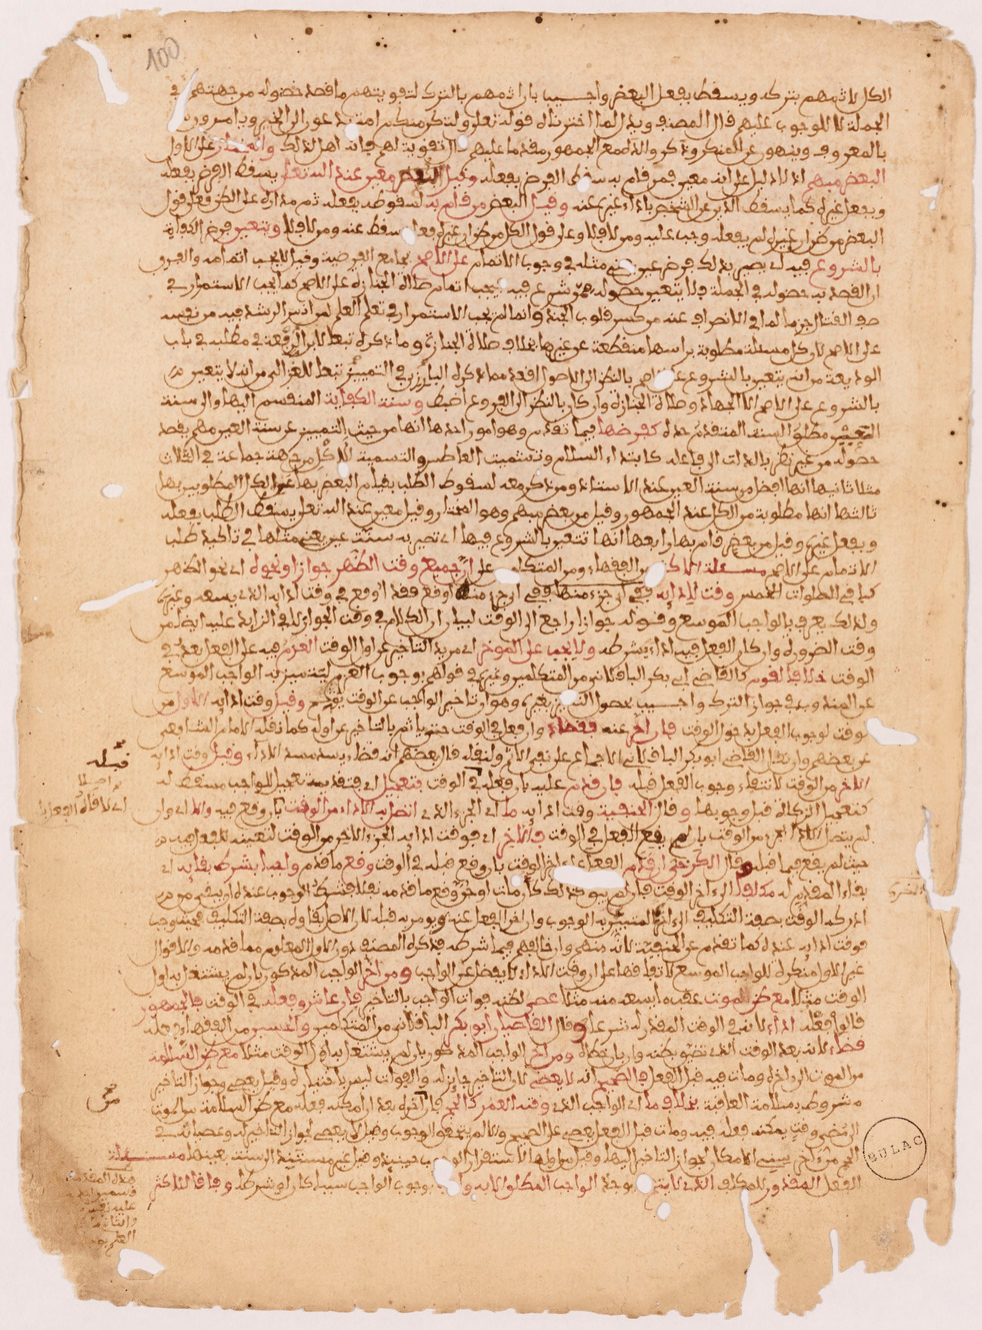 100
الكل لاثمهم بتركه ويسقط بفعل البعض واجيب بان اثمهم بالترك لتفويتهم ما قصد حصوله من جهتهم في
الجملة لا للوجوب عليهم قال المصنف ويدل لما اخترناه قوله تعلى ولتكن منكم امة يدعون الى الخير ويامرون
بالمعروف وينهون عن المنكر وذكر والده مع الجمهور مقدما عليهم قال تقوية لهم فانه اهل لذلك والمختار على الاول
البعض مبهم اذ لا دليل على انه معين فمن قام به سقط الفرض بفعله وقيل البعض معين عند الله تعلى يسقط الفرض بفعله
وبفعل غيره كما يسقط الدين عن الشخص باداء غيره عنه وقيل البعض من قام به لسقوطه بفعله ثم مداره على الظن فعلى قول
البعض من ظن ان غيره لم يفعله وجب عليه ومن لا فلا وعلى قول الكل من ظن ان غيره فعله سقط عنه ومن لا فلا ويتعين فرض الكفاية
بالشروع فيه اي يصير بذلك فرض عين يعني مثله في وجوب الاتمام على الاصح بجامع الفرضية وقيل لا يجب اتمامه والفرق
ان القصد به حصوله في الجملة فلا يتعين حصوله ممن شرع فيه فيجب اتمام صلاة الجنازة على الاصح كما يجب الاستمرار في
صف القتال جزما لما في الانصراف عنه من كسر قلوب الجند وانما لم يجب الاستمرار في تعلم العلم لمن انس الرشد فيه من نفسه
على الاصح لان كل مسئلة مطلوبة براسها منقطعة عن غيرها بخلاف صلاة الجنازة وما ذكره تبعا لابن الرفعة في مطلبه في باب
الوديعة من انه يتعين بالشروع على الاصح بالنظر الى الاصول اقعد مما ذكره البارزي في التمييز تبعا للغزالي من انه لا يتعين
بالشروع على الاصح الا الجهاد وصلاة الجنازة وان كان بالنظر الى الفروع اضبط وسنة الكفاية المنقسم اليها والى سنة
العين مطلق السنة المتقدم حده كفرضها فيما تقدم وهو امور احدها انها من حيث التمييز عن سنة العين مهم يقصد
حصوله من غير نظر بالذات الى فاعله كابتداء السلام وتشميت العاطس والتسمية للاكل من جهة جماعة في الثلاث
مثلا ثانيها انها افضل من سنة العين عند الاستاذ ومن ذكر معه لسقوط الطلب بقيام البعض بها عن الكل المطلوبين بها
ثالثها انها مطلوبة من الكل عند الجمهور وقيل من بعض مبهم وهو المختار وقيل معين عند الله تعلى يسقط الطلب بفعله
وبفعل غيره وقيل من بعض قام بها رابعها انها تتعين بالشروع فيها اي تصير به سنة عين يعني مثلها في تاكيد طلب
الاتمام على الاصح مسئلة الاكثر من الفقهاء ومن المتكلمين على ان جميع وقت الظهر جوازا ونحوه اي نحو الظهر
كباقي الصلوات الخمس وقت لادائه ففي اي جزء منه اوقع فقد اوقع في وقت ادائه الذي يسعه وغيره
ولذلك يعرف بالواجب الموسع وقوله جوازا راجع الى الوقت لبيان ان الكلام في وقت الجواز لا في الزائد عليه ايضا من
وقت الضرورة وان كان الفعل فيه اداء بشرطه ولا يجب على المؤخر اي مريد التاخير عن اول الوقت العزم فيه على الفعل بعد في
الوقت خلافا لقوم كالقاضي ابي بكر الباقلاني من المتكلمين وغيره في قولهم بوجوب العزم ليتميز به الواجب الموسع
عن المندوب في جواز الترك واجيب بحصول التمييز بغيره وهو ان تاخير الواجب عن الوقت يؤثم وقيل وقت ادائه الاول من
الوقت لوجوب الفعل بدخول الوقت فان اخر عنه فقضاء وان فعل في الوقت حتى ياثم بالتاخير عن اوله كما نقله الامام الشافعي
عن بعضهم وان نقل القاضي ابو بكر الباقلاني الاجماع على نفي الاثم ولنقله قال بعضهم انه قضاء يسد مسد الاداء وقيل وقت ادائه
الاخر من الوقت لانتفاء وجوب الفعل قبله فان قدم عليه بان فعله في الوقت فتعجيل اي فتقديمه تعجيل للواجب مسقط له
كتعجيل الزكاة قبل وجوبها وقال الحنفية وقت ادائه ما اي الجزء الذي اتصل به الاداء من الوقت بان وقع فيه والا اي وان
لم يتصل الاداء بجزء من الوقت بان لم يقع الفعل في الوقت فالاخر اي فوقت ادائه الجزء الاخر من الوقت لتعينه للفعل فيه
حيث لم يقع فيما قبله وقال الكرخي ان قدم الفعل على اخر الوقت بان وقع قبله في الوقت وقع ما قدم واجبا بشرط بقائه اي
بقاء المقدم له مكلفا الى اخر الوقت فان لم يبق كذلك كان مات او جن وقع ما قدمه نفلا فشرط الوجوب عنده ان يبقى من
ادركه الوقت بصفة التكليف الى اخره المتبين به الوجوب وان اخر الفعل عنه ويؤمر به قبله لان الاصل بقاؤه بصفة التكليف فحيث وجب
فوقت ادائه عنده كما تقدم عن الحنفية لانه منهم وان خالفهم فيما شرطه فذكره المصنف دون الاول المعلوم مما قدمه والاقوال
غير الاول منكرة للواجب الموسع لاتفاقها على ان وقت الاداء لا يفضل عن الواجب ومن اخر الواجب المذكور بان لم يشتغل به اول
الوقت مثلا مع ظن الموت عقب ما يسعه منه مثلا عصى لظنه فوات الواجب بالتاخير فان عاش وفعله في الوقت فالجمهور
قالوا فعله اداء لانه في الوقت المقدر له شرعا وقال القاضيان ابو بكر الباقلاني من المتكلمين والحسين من الفقهاء فعله
قضاء لانه بعد الوقت الذي تضيق بظنه وان بان خطاه ومن اخر الواجب المذكور بان لم يشتغل به اول الوقت مثلا مع ظن السلامة
من الموت الى اخره ومات فيه قبل الفعل فالصحيح انه لا يعصي لان التاخير جائز له والفوات ليس باختياره وقيل يعصي وجواز التاخير
مشروط بسلامة العاقبة بخلاف ما اي الواجب الذي وقته العمر كالحج فان اخره بعد ان امكنه فعله مع ظن السلامة من الموت
الى مضي وقت يمكنه فعله فيه ومات قبل الفعل يعصي على الصحيح والا لم يتحقق الوجوب وقيل لا يعصي لجواز التاخير له وعصيانه في
الحج من اخر سني الامكان لجواز التاخير اليها وقيل من اولها لاستقرار الوجوب حينئذ وقيل غير مستند الى سنة بعينها مسئلة
الفعل المقدور للمكلف الذي لا يتم اي يوجد الواجب المطلق الا به واجب بوجوب الواجب سببا كان او شرطا وفاقا للاكثر
قبله
BULAC